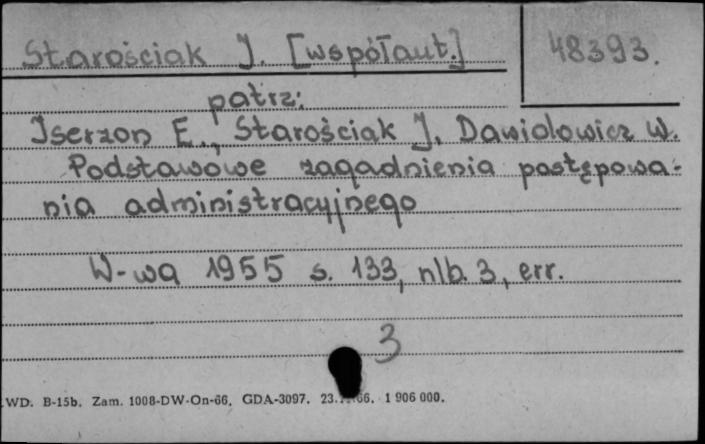 Starościak J. [współaut.] 48393.
patrz:
Iserzon E., Starościak J, Dawidowicz W.
Podstawowe zagadnienia postępowa-
nia administracyjnego
W-wa 1955 s. 133, nlb. 3, err.
3
WD. B-15b. Zam. 1008-DW-On-66. GDA-3097. 1 906 000.